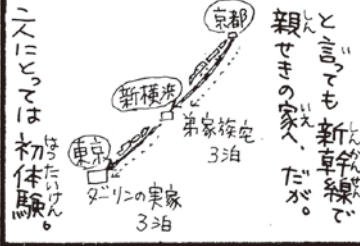 と言っても新幹線で
親せきの家へ、だが。
京都
新横浜
弟家族宅
3泊
東京
ダーリンの実家
3泊
二人にとっては初体験。